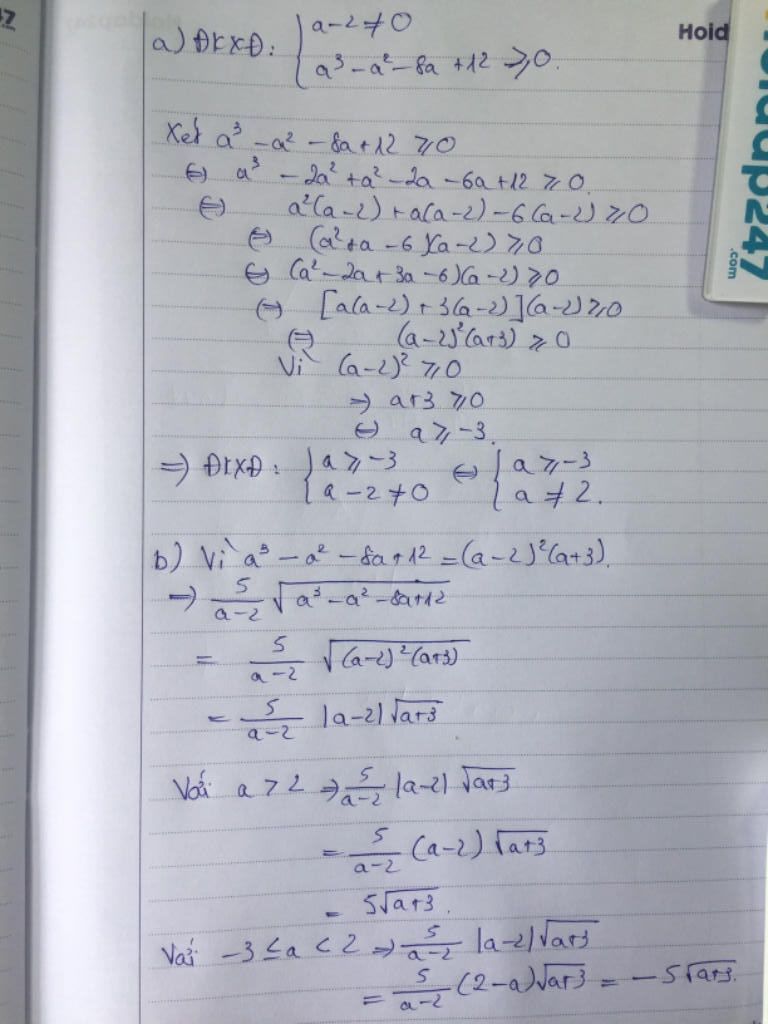 Hold
Holdap247
.com
a) ĐKXĐ: { a-2 ≠ 0
a³ - a² - 8a + 12 ⩾ 0.
Xét a³ - a² - 8a + 12 ⩾ 0
⇔ a³ - 2a² + a² - 2a - 6a + 12 ⩾ 0.
⇔ a²(a-2) + a(a-2) - 6(a-2) ⩾ 0
⇔ (a² + a - 6)(a-2) ⩾ 0
⇔ (a² - 2a + 3a - 6)(a-2) ⩾ 0
⇔ [a(a-2) + 3(a-2)](a-2) ⩾ 0
⇔ (a-2)²(a+3) ⩾ 0
Vì (a-2)² ⩾ 0
⇒ a+3 ⩾ 0
⇔ a ⩾ -3.
⇒ ĐKXĐ: { a ⩾ -3 ⇔ { a ⩾ -3
a - 2 ≠ 0 a ≠ 2.
b) Vì a³ - a² - 8a + 12 = (a-2)²(a+3).
⇒ 5/(a-2) √(a³ - a² - 8a + 12)
= 5/(a-2) √((a-2)²(a+3))
= 5/(a-2) |a-2| √(a+3)
Với a > 2 ⇒ 5/(a-2) |a-2| √(a+3)
= 5/(a-2) (a-2) √(a+3)
= 5√(a+3).
Với -3 ≤ a < 2 ⇒ 5/(a-2) |a-2| √(a+3)
= 5/(a-2) (2-a) √(a+3) = -5√(a+3).